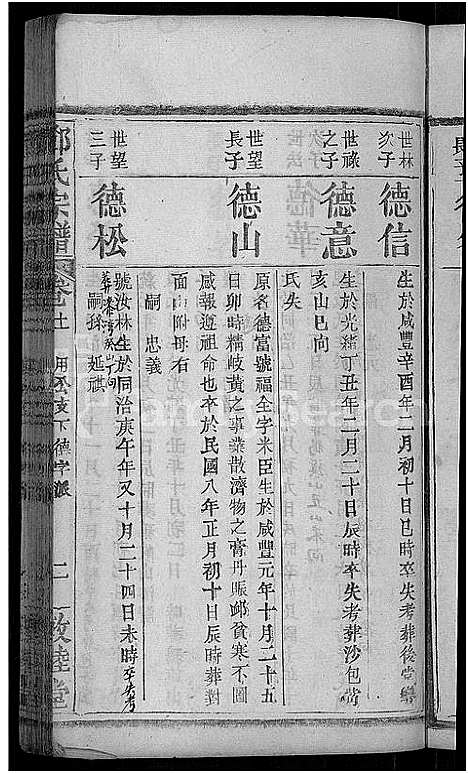 世林
次子
德信
生於咸豐辛酉年二月初十日巳時卒失考葬後堂
世祿
之子
德意
生於光緒丁丑年二月二十日辰時卒失考葬沙包
亥山巳向
氏失
世望
長子
德山
原名德富號福全字米臣生於咸豐元年十月二十五
日卯時
岐黃之事業散濟物之膏丹賑鄰貧寒不圖
咸報遵祖命也卒於民國八年正月初十日辰時葬對
面山附母右
嗣 忠義
世望
三子
德松
號汝林生於同治庚午年又十月二十四日未時卒失考
嗣孫 延祺
氏宗譜
下德字派
二
敦睦堂